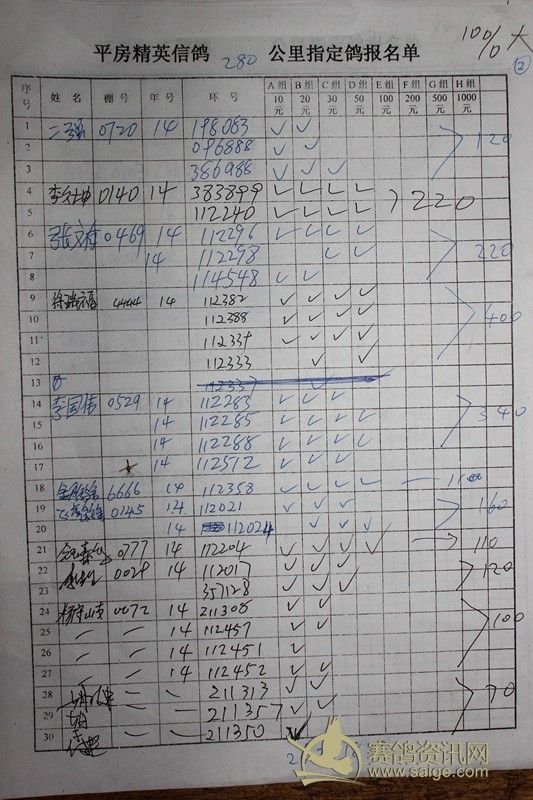 10% 大
②
平房精英信鸽 280 公里指定鸽报名单
序号 姓 名 棚 号 年 号 环 号 A组 10元 B组 20元 C组 30元 D组 50元 E组 100元 F组 200元 G组 500元 H组 1000元
1 二强 0720 14 198083 ✓ ✓
2 096888 ✓ ✓ 120
3 386988 ✓ ✓ ✓
4 0140 14 383899 ✓ ✓ ✓ ✓ 220
5 112240 ✓ ✓ ✓ ✓
6 0469 14 112296 ✓ ✓ ✓ ✓
7 14 112298 ✓ ✓ 220
8 114548 ✓ ✓
9 4444 14 112382 ✓ ✓ ✓ ✓
10 112388 ✓ ✓ ✓ ✓ 400
11 112339 ✓ ✓ ✓ ✓
12 112333 ✓ ✓
13
14 李国伟 0529 14 112283 ✓ ✓ ✓
15 14 112285 ✓ ✓ ✓ ✓ 340
16 14 112288 ✓ ✓ ✓ ✓
17 14 112512 ✓ ✓ ✓
18 6666 14 112358 ✓ ✓ ✓ ✓
19 0145 14 112021 ✓ ✓ ✓ 160
20 14 112024 ✓ ✓ ✓
21 0777 14 112204 ✓ ✓ ✓ ✓ 110
22 0029 14 112017 ✓ ✓ ✓ 120
23 357128 ✓ ✓ ✓
24 0072 14 211305 ✓ ✓
25 14 112457 ✓ ✓ 100
26 14 112451 ✓
27 14 112452 ✓ ✓
28 211313 ✓ ✓
29 211357 ✓ ✓ 70
30 211350
赛鸽资讯网
www.saige.com